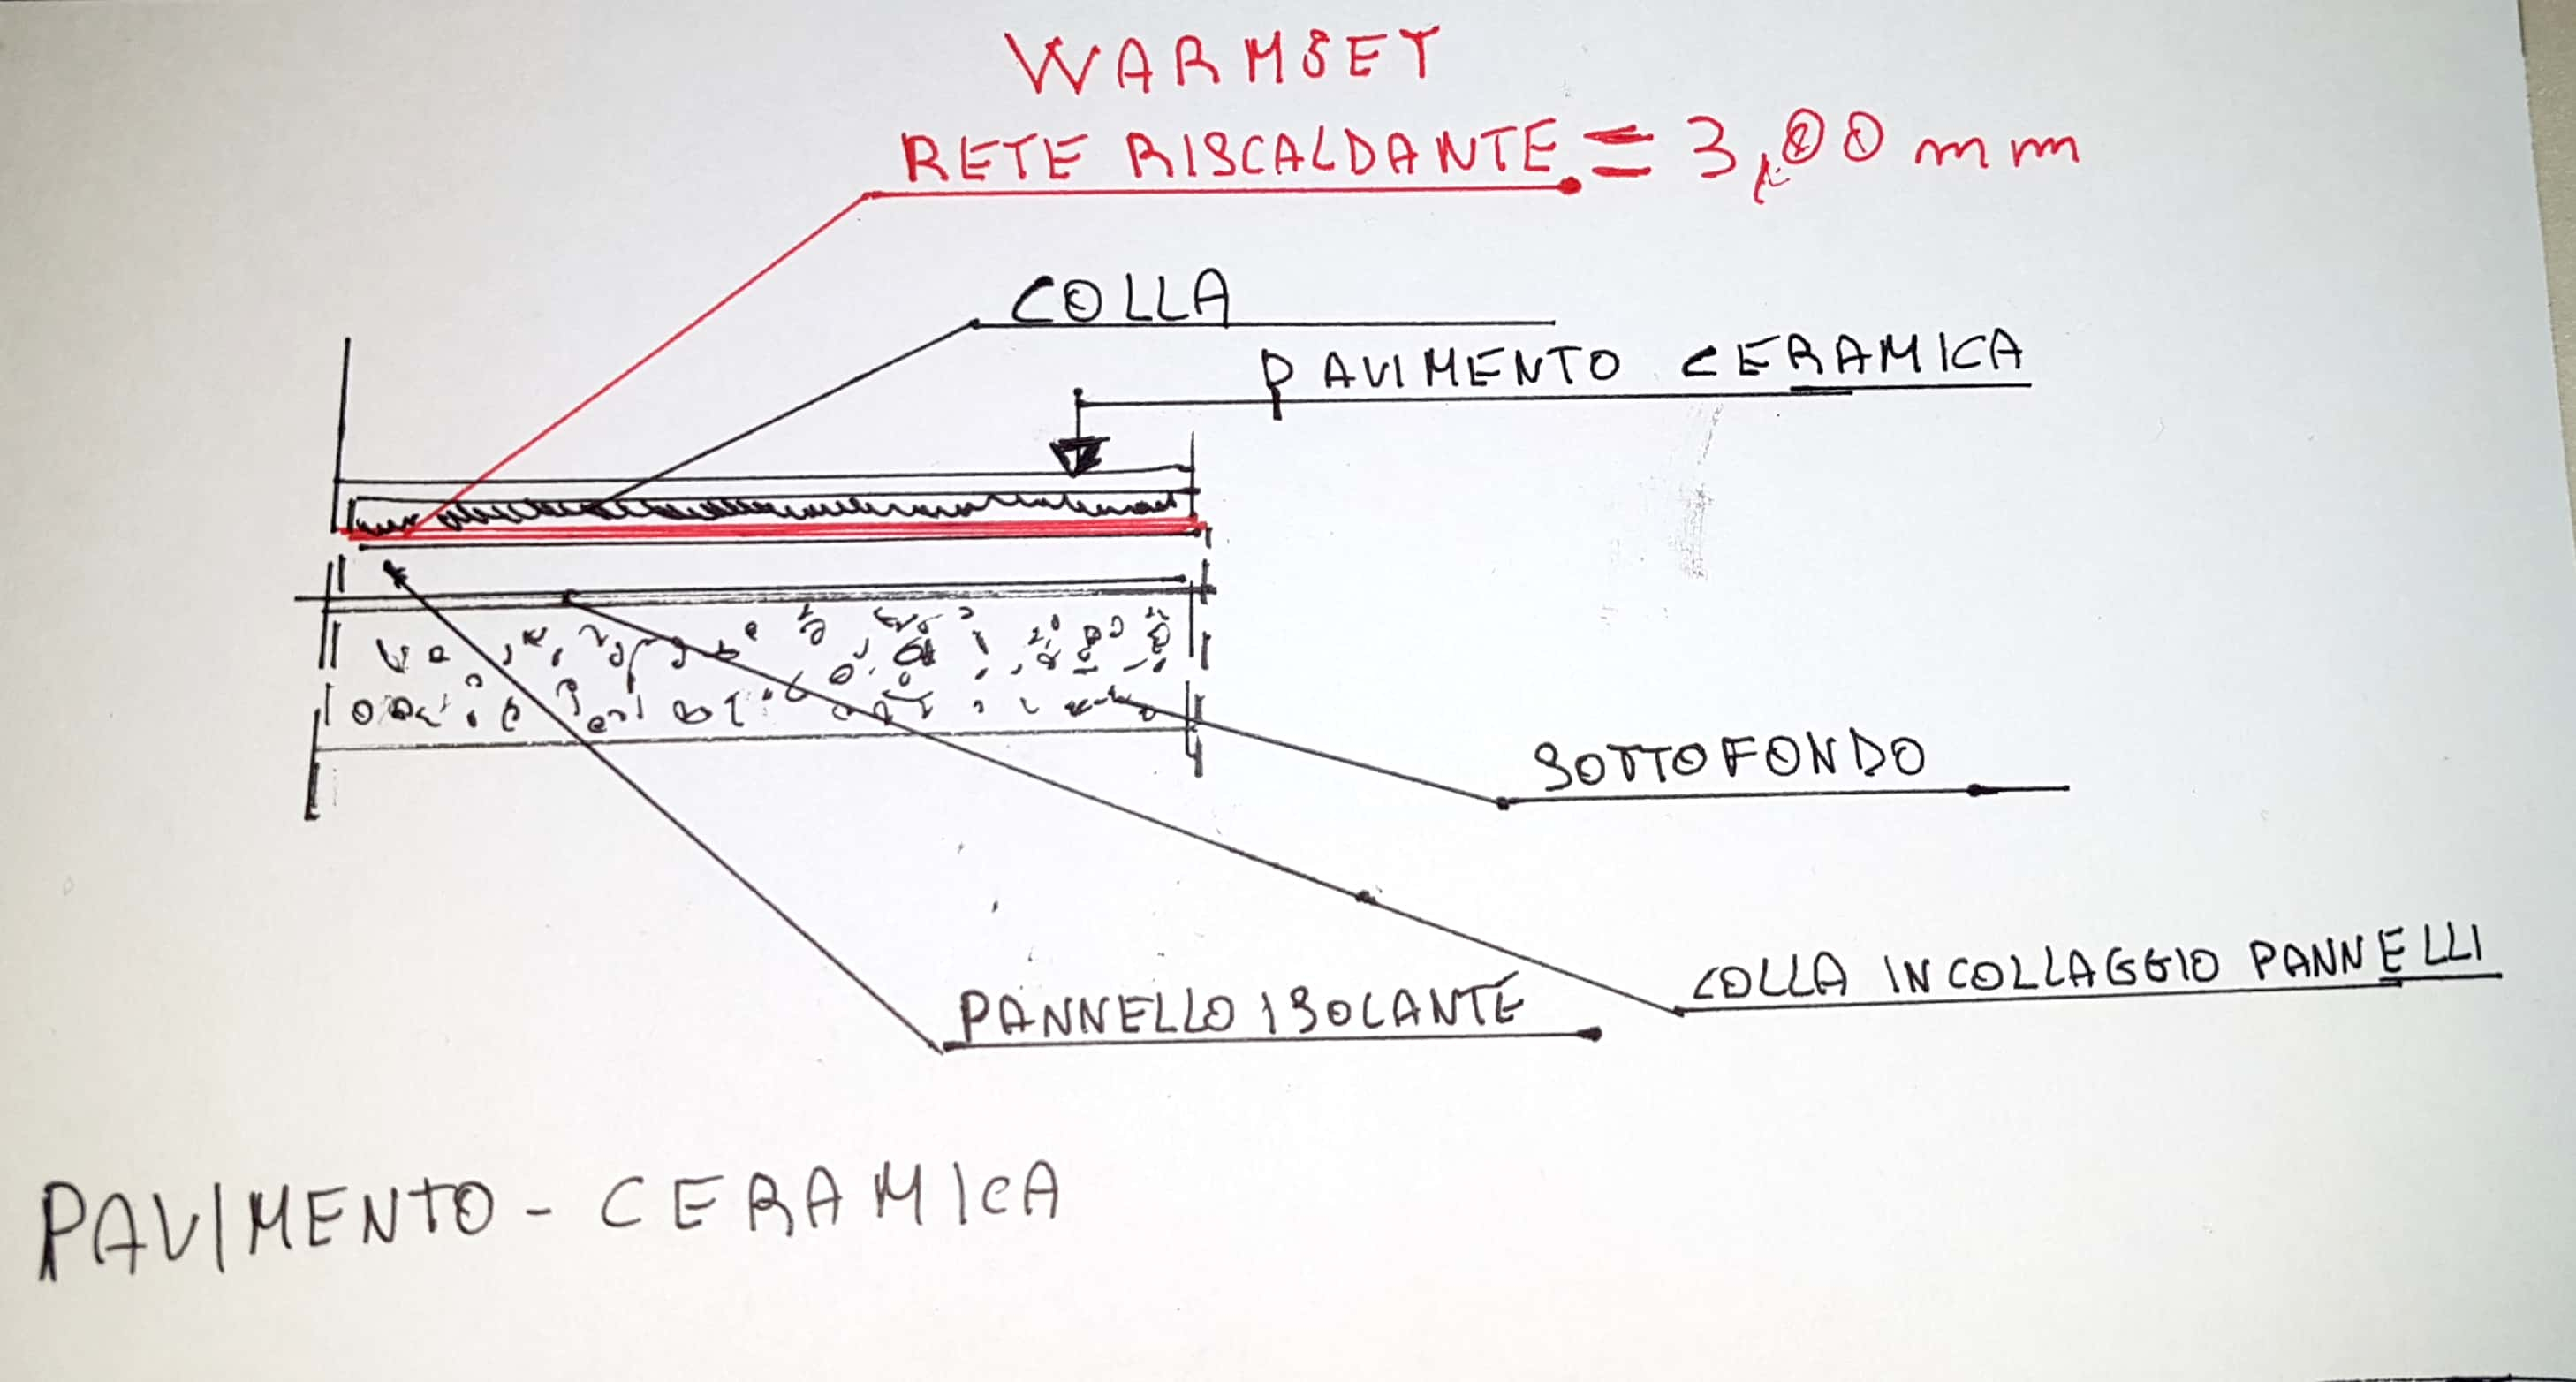 WARMSET
RETE RISCALDANTE = 3,00 mm
COLLA
PAVIMENTO CERAMICA
SOTTOFONDO
COLLA INCOLLAGGIO PANNELLI
PANNELLO ISOLANTE
PAVIMENTO - CERAMICA